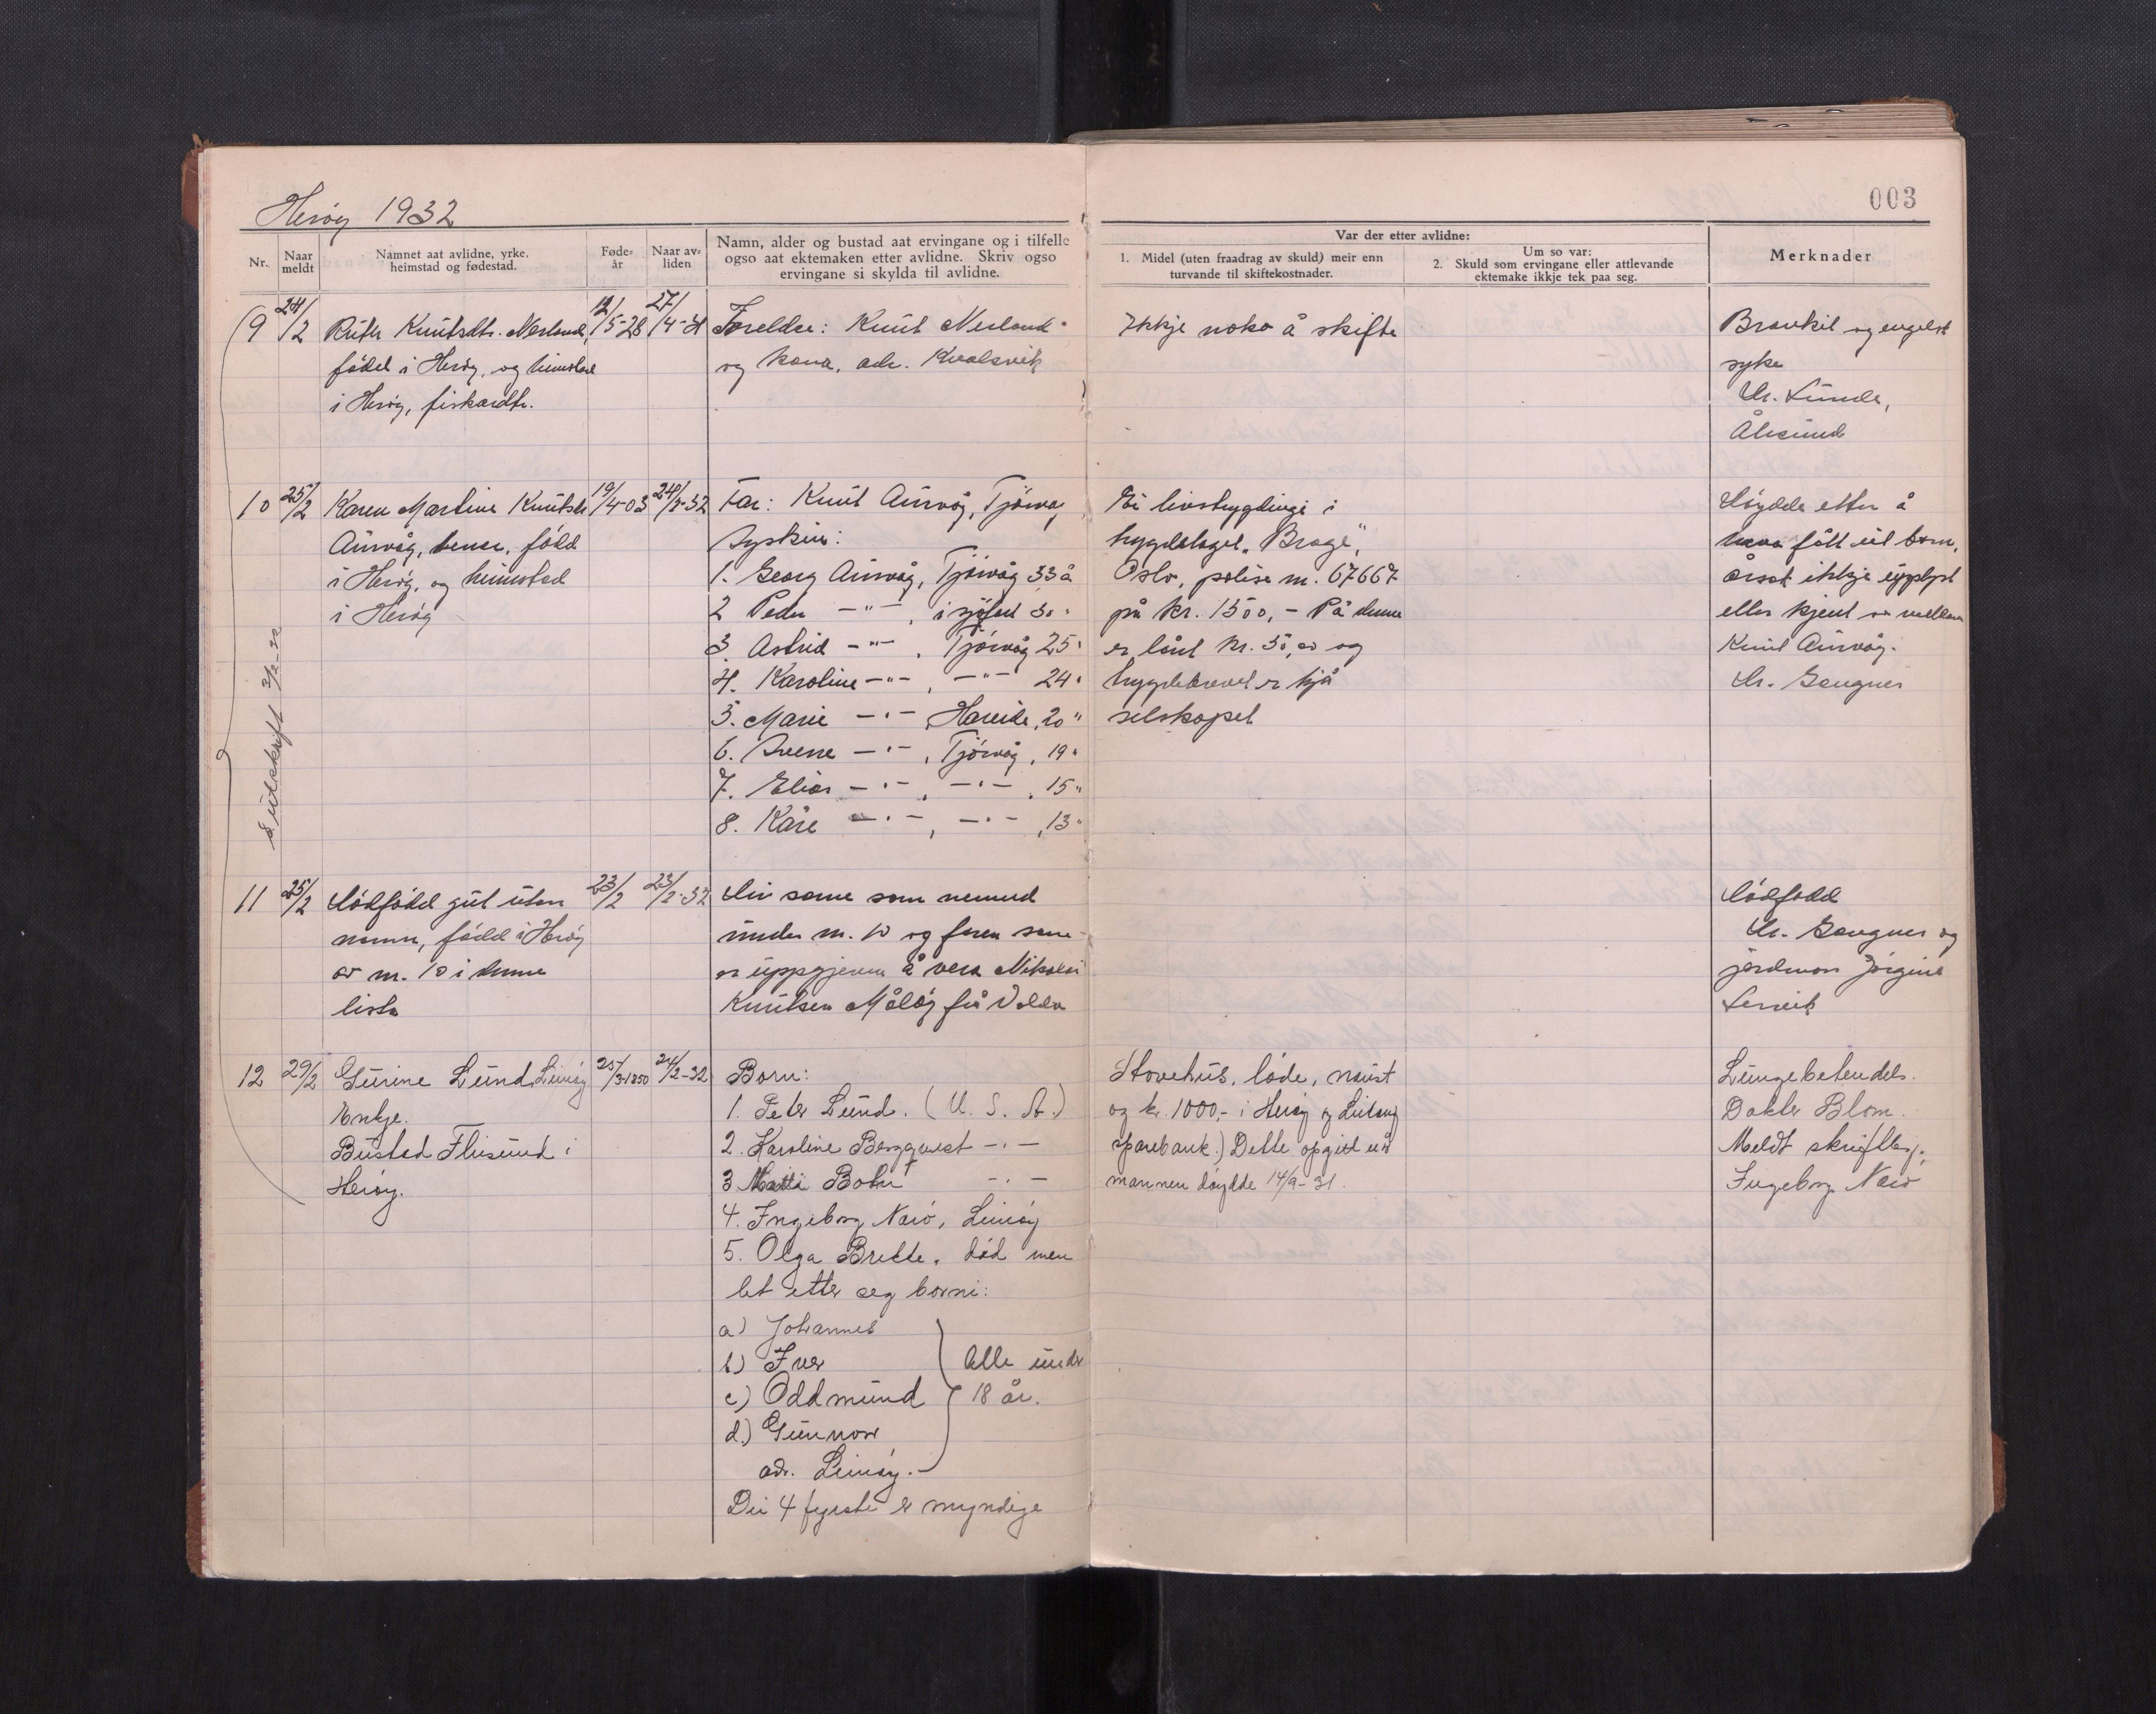 Herøy 1932
003
Nr.
Naar meldt
Namnet aat avlidne, yrke, heimstad og fødestad.
Føde-år
Naar av-liden
Namn, alder og bustad aat ervingane og i tilfelle
ogso aat ektemaken etter avlidne. Skriv ogso
ervingane si skylda til avlidne.
Var der etter avlidne:
1. Midel (uten fraadrag av skuld) meir enn
turvande til skiftekostnader.
Um so var:
2. Skuld som ervingane eller attlevande
ektemake ikkje tek paa seg.
Merknader
9 24/2 Ruth Knutsdtr. Nerland, 12/5-28 27/4-31
fødd i Herøy, og heimstad
i Herøy, fiskardtr.
Foreldre: Knut Nerland
og kona, adr. Kvalsvik
Ikkje noko å skifte
Bronkit og engelsk
syke
Dr. Lunde,
Ålesund
10 25/2 Karen Martine Knutsdr 19/4-03 24/2-32
Aurvåg, fødd
i Herøy, og heimstad
i Herøy
Far: Knut Aurvåg, Tjørvåg
Syskin:
1. Georg Aurvåg, Tjørvåg 33 å
2 Peder -"-, i sjøfart 30 "
3. Astrid -"-, Tjørvåg 25 "
4. Karoline -"-, -"- 24 "
5. Marie -"-, Hareide, 20 "
6. Sverre -"-, Tjørvåg, 19 "
7. Elias -"-, -"-, 15 "
8. Kåre -"-, -"-, 13 "
Ei livstrygding i
trygdelaget „Brage",
Oslo, polise nr. 67667
på kr. 1500,- På denne
er lånt kr. 50,00 og
trygdebrevet er hjå
selskapet
Døydde etter å
hava fått eit barn,
årsak ikkje upplyst
eller kjent
Knut Aurvåg.
Dr. Gangnes
Utskrift
11 25/2 Dødfødd gut utan 23/2 23/2-32
namn, fødd i Herøy
av nr. 10 i denne
lista
Dei same som nemnd
under nr. 10 og faren som
er uppgjeven å vera Nikolai
Knutsen Måløy frå Volda
Dødfødd
Dr. Gangnes og
jordmor Jørgine
Lervik
12 29/2 Gurine Lund, Leinøy 25/3-1850 24/2-32
Enkje.
Bustad Flusund i
Herøy.
Born:
1. Peter Lund. (U. S. A.)
2. Karoline Bergqvist -"-
3 Bohn -"-
4. Ingeborg Narø, Leinøy
5. Olga Brekke, død men
let etter seg borni:
a) Johannes
b) Iver
c) Oddmund
d.) Gunnor
Alle under
18 år.
adr. Leinøy.
Dei 4 fyrste er myndige
Stovehus, løde, naust
og kr. 1000,- i Herøy og Leikang
sparebank.) Dette opgitt når
mannen døydde 14/9-31.
Lungebetendels.
Doktor Blom.
Meldt skriftleg.
Ingeborg Narø